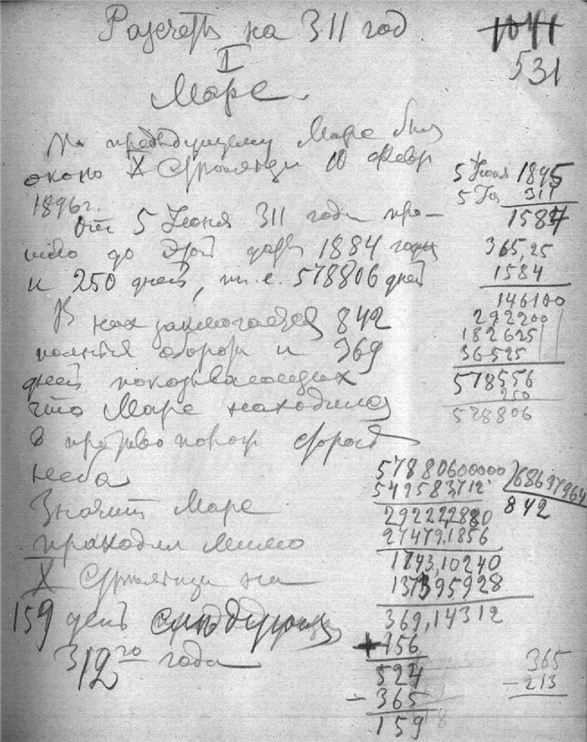 Разсчетъ на 311 год
1041
531
I
Марс.
По предъидущему Марс был
около X Стрельца 10 февр
1896г.
От 5 Июня 311 года про-
шло до этой даты 1884 года
и 250 дней, т.е. 578806 дней
В них заключается 842
полных оборота и 369
дней показывающих
что Марс находился
в противоположн
неба
Значит Марс
проходил мимо
X Стрельца на
159 день следующ
312го года
5 Июня 1895
311
1584
365,25
1584
146100
292200
182625
36525
578556
250
578806
57880600000
68697964
549583712
842
292222880
27479,1856
1843,10240
137395928
369,14312
+ 156
524
- 365
159
365
- 213